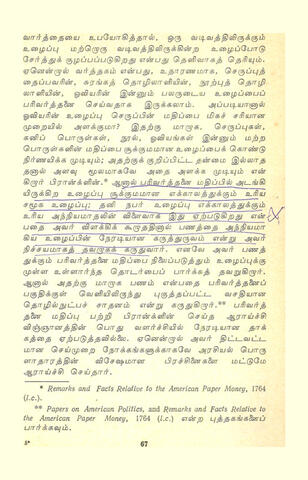 வார்த்தையை உபயோகித்தால், ஒரு வடிவத்திலிருக்கும்
உழைப்பு மற்றொரு வடிவத்திலிருக்கின்ற உழைப்போடு
சேர்த்துக் குழப்பப்படுகிறது என்பது தெளிவாகத் தெரியும்.
ஏனென்றால் வர்த்தகம் என்பது, உதாரணமாக, செருப்புத்
தைப்பவரின், சுரங்கத் தொழிலாளியின், நூற்புத் தொழி
லாளியின், ஓவியரின் இன்னும் பலருடைய உழைப்பைப்
பரிவர்த்தனை செய்வதாக இருக்கலாம். அப்படியானால்
ஓவியரின் உழைப்பு செருப்பின் மதிப்பை மிகச் சரியான
முறையில் அளக்குமா? இதற்கு மாறாக, செருப்புகள்,
கனிப் பொருள்கள், நூல், ஓவியங்கள் இன்னும் மற்ற
பொருள்களின் மதிப்பை சூக்குமமான உழைப்பைக் கொண்டு
நிர்ணயிக்க முடியும்; அதற்குக் குறிப்பிட்ட தன்மை இல்லாத
தனால் அளவு மூலமாகவே அதை அளக்க முடியும் என்
கிறார் பிராங்க்ளின்.* ஆனால் பரிவர்த்தனை மதிப்பில் அடங்கி
யிருக்கிற உழைப்பு சூக்குமமான எக்காலத்துக்கும் உரிய
சமூக உழைப்பு; தனி நபர் உழைப்பு எக்காலத்துக்கும்
உரிய அந்நியமாதலின் விளைவாக இது ஏற்படுகிறது என்
பதை அவர் விளக்கிக் கூறாததினால் பணத்தை அந்நியமா
கிய உழைப்பின் நேரடியான கருத்துருவம் என்று அவர்
நிச்சயமாகத் தவறாகக் கருதுவார். எனவே அவர் பணத்
துக்கும் பரிவர்த்தனை மதிப்பை நிலைப்படுத்தும் உழைப்புக்கு
முள்ள உள்ளார்ந்த தொடர்பைப் பார்க்கத் தவறுகிறார்.
ஆனால் அதற்கு மாறாக பணம் என்பது பரிவர்த்தனைப்
பகுதிக்குள் வெளியிலிருந்து புகுத்தப்பட்ட வசதியான
தொழில்நுட்பச் சாதனம் என்று கருதுகிறார்.** பரிவர்த்
தனை மதிப்பு பற்றி பிராங்க்ளின் செய்த ஆராய்ச்சி
விஞ்ஞானத்தின் பொது வளர்ச்சியில் நேரடியான தாக்
கத்தை ஏற்படுத்தவில்லை. ஏனென்றால் அவர் திட்டவட்ட
மான செய்முறை நோக்கங்களுக்காகவே அரசியல் பொரு
ளாதாரத்தின் விசேஷமான பிரச்சினைகளை மட்டுமே
ஆராய்ச்சி செய்தார்.
* Remarks and Facts Relative to the American Paper Money, 1764
(l.c.).
** Papers on American Politics, and Remarks and Facts Relative to
the American Paper Money, 1764 (l.c.) என்ற புத்தகங்களைப்
பார்க்கவும்.
5*
67